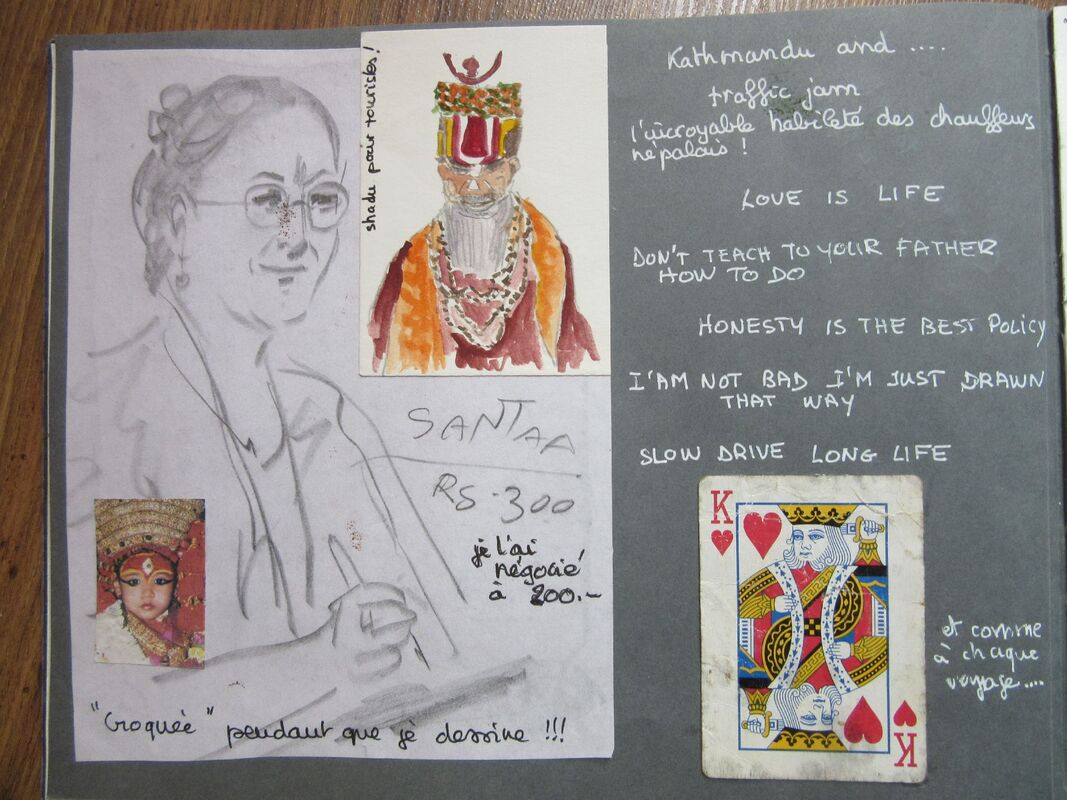 shadu pour touristes !
SANTAA
RS-300
je l'ai
négocié
à 200.-
"Croquée" pendant que je dessine !!!
Kathmandu and ....
traffic jam
l'incroyable habileté des chauffeurs
népalais !
LOVE IS LIFE
DON'T TEACH TO YOUR FATHER
HOW TO DO
HONESTY IS THE BEST POLICY
I'AM NOT BAD I'M JUST DRAWN
THAT WAY
SLOW DRIVE LONG LIFE
K
K
et comme
à chaque
voyage....